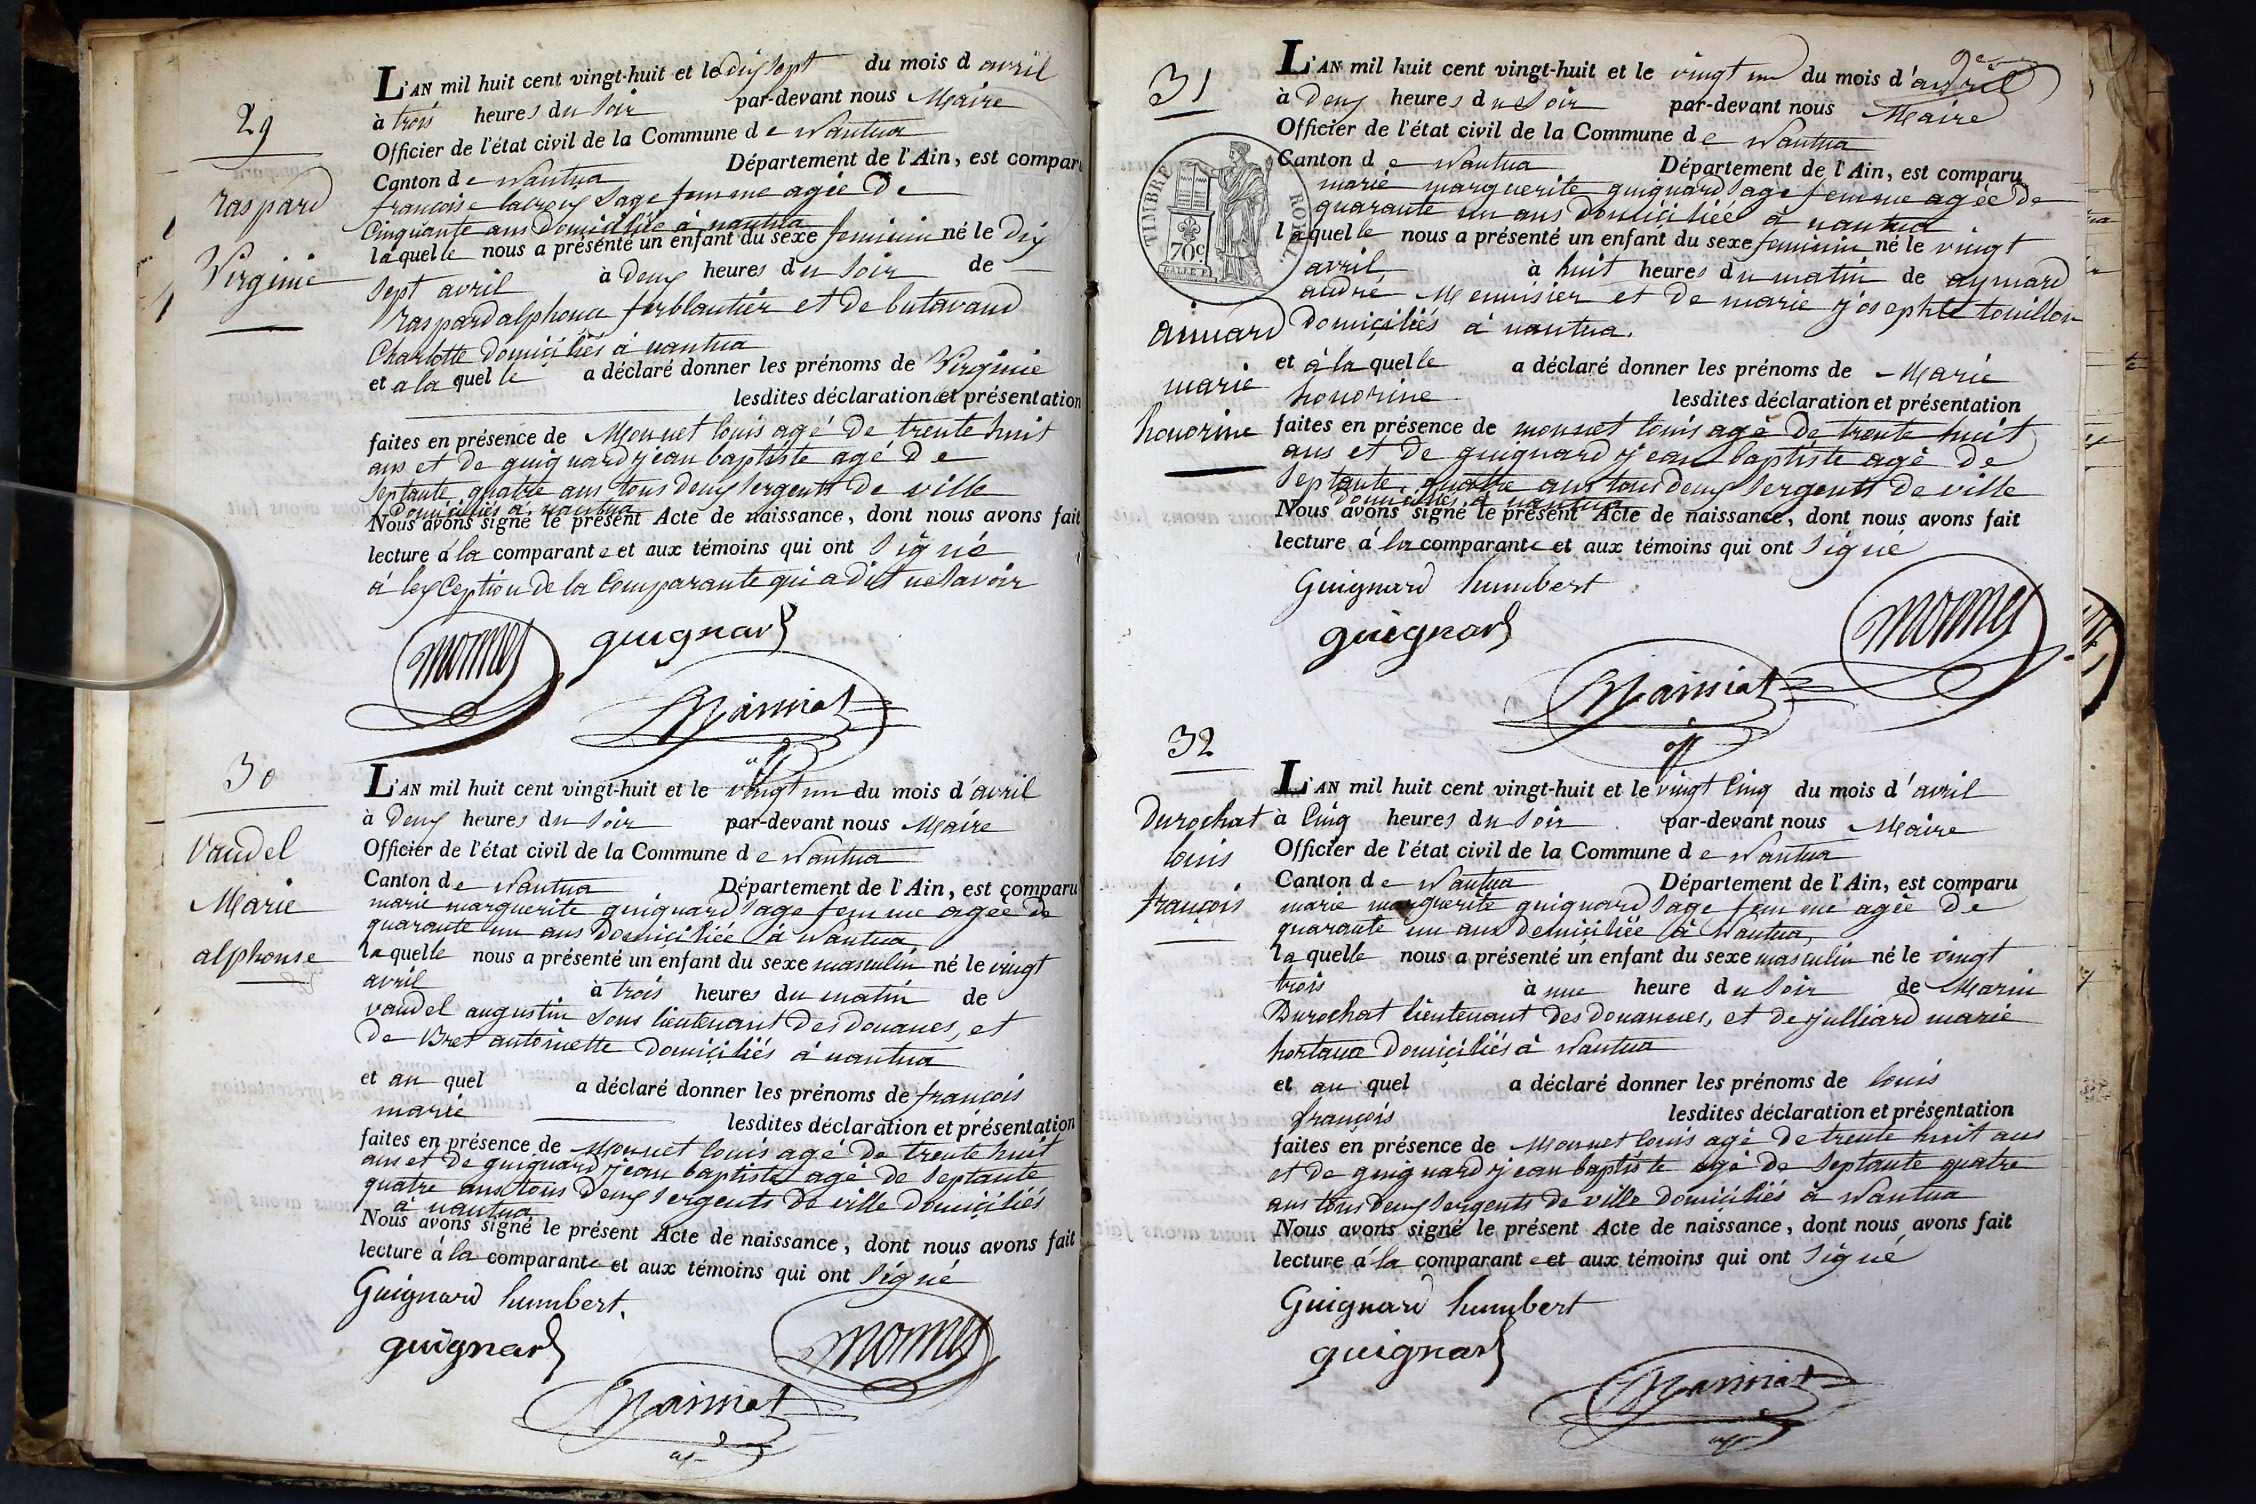 29
raspard
Virginie
L'AN mil huit cent vingt-huit et le dix sept du mois d avril
à trois heures du soir par-devant nous Maire
Officier de l'état civil de la Commune de Nantua
Canton de Nantua Département de l'Ain, est comparu
françoise lacroix sage femme agée De
Cinquante ans Domiciliée à nantua
laquelle nous a présenté un enfant du sexe feminin né le dix
sept avril à deux heures du soir de
raspard alphonse ferblantier et de butavand
Charlotte Domiciliés à nantua
et a la quelle a déclaré donner les prénoms de Virginie
lesdites déclaration et présentation
faites en présence de Monnet louis agé De trente huit
ans et de guignard jean baptiste agé De
septante quatre ans tous deux sergents De ville
Domiciliés à nantua
Nous avons signé le présent Acte de naissance, dont nous avons fait
lecture à la comparante et aux témoins qui ont signé
à lexception de la Comparante qui a dit ne savoir
monnet guignard
30
Vandel
Marie
alphonse
L'AN mil huit cent vingt-huit et le vingt un du mois d'avril
à deux heures du soir par-devant nous Maire
Officier de l'état civil de la Commune de Nantua
Canton de Nantua Département de l'Ain, est comparu
marie marguerite guignard sage femme agée De
quarante un ans Domiciliée à Nantua,
laquelle nous a présenté un enfant du sexe masculin né le vingt
avril à trois heures du matin de
vandel augustin sous lieutenant Des douanes, et
de Bret antoinette Domiciliés à nantua
et au quel a déclaré donner les prénoms de françois
marie lesdites déclaration et présentation
faites en présence de Monnet louis agé De trente huit
ans et de guignard jean baptiste agé de septante
quatre ans tous deux sergents De ville Domiciliés
à nantua
Nous avons signé le présent Acte de naissance, dont nous avons fait
lecture à la comparante et aux témoins qui ont signé
Guignard humbert.
guignard monnet
31
TIMBRE ROYAL
70c
aimard
marie
honorine
L'AN mil huit cent vingt-huit et le vingt un du mois d'avril
à deux heures du soir par-devant nous Maire
Officier de l'état civil de la Commune de Nantua
Canton de Nantua Département de l'Ain, est comparu
marie marguerite guignard sage femme agée De
quarante un ans Domiciliée à nantua
laquelle nous a présenté un enfant du sexe feminin né le vingt
avril à huit heures du matin de aymard
andré Menuisier et De marie josephte touillon
Domiciliés à nantua.
et à la quelle a déclaré donner les prénoms de Marie
honorine lesdites déclaration et présentation
faites en présence de monnet louis agé De trente huit
ans et De guignard jean baptiste agé De
septante quatre ans tous deux sergents De ville
Domiciliés à nantua
Nous avons signé le présent Acte de naissance, dont nous avons fait
lecture à la comparante et aux témoins qui ont signé
Guignard humbert
guignard monnet
32
Durochat
louis
françois
L'AN mil huit cent vingt-huit et le vingt Cinq du mois d'avril
à Cinq heures du soir par-devant nous Maire
Officier de l'état civil de la Commune de Nantua
Canton de Nantua Département de l'Ain, est comparu
marie marguerite guignard sage femme agée De
quarante un ans domiciliée à Nantua,
laquelle nous a présenté un enfant du sexe masculin né le vingt
trois à une heure du soir de Marin
Durochat lieutenant des douannes, et de julliard marie
Domiciliés à Nantua
et au quel a déclaré donner les prénoms de louis
françois lesdites déclaration et présentation
faites en présence de Monnet louis agé de trente huit ans
et de guignard jean baptiste agé De septante quatre
ans tous deux sergents de ville Domiciliés à Nantua
Nous avons signé le présent Acte de naissance, dont nous avons fait
lecture à la comparante et aux témoins qui ont signé
Guignard humbert
guignard